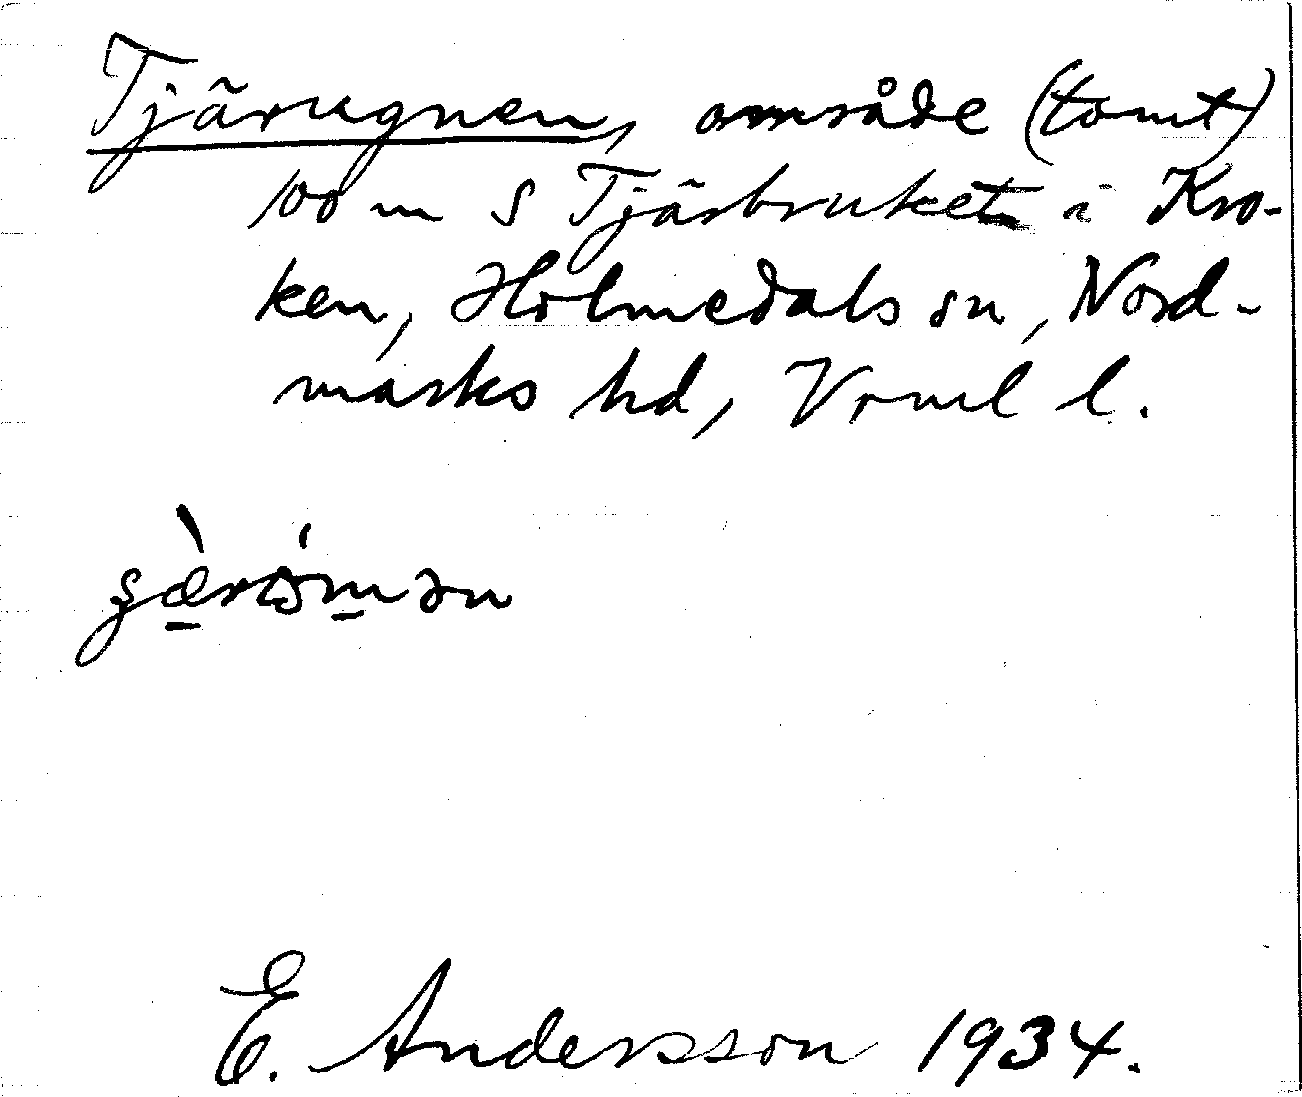 Tjärugnen, område (tomt)
100 m S Tjärbruket i Kro-
ken, Holmedals sn, Nord-
marks hd, Vrml l.
E. Andersson 1934.